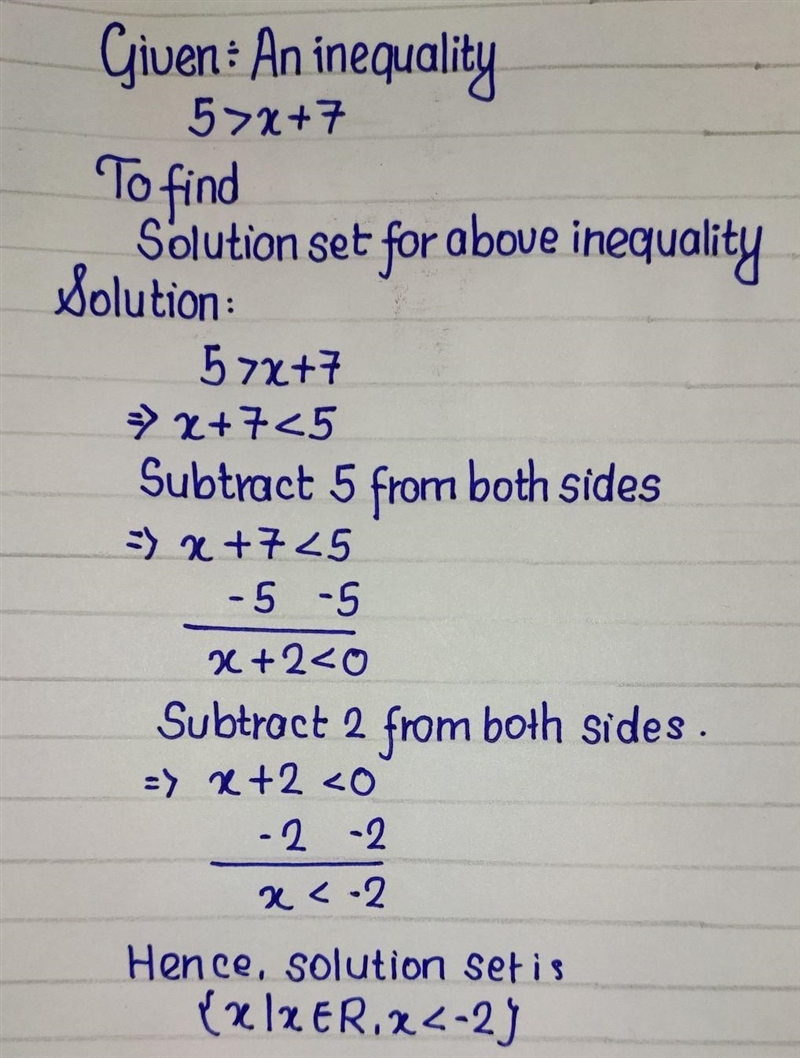 Given: An inequality
5>x+7
To find
Solution set for above inequality
Solution:
5>x+7
⇒ x+7<5
Subtract 5 from both sides
⇒ x+7<5
-5 -5
x+2<0
Subtract 2 from both sides.
⇒ x+2<0
-2 -2
x < -2
Hence, solution set is
{x|x∈R, x<-2}